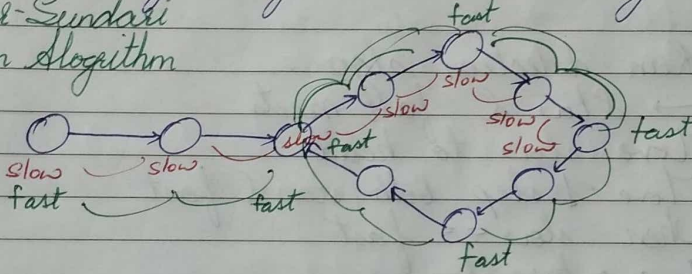 -Sundari
Alogrithm
fast
slow
slow
slow
slow
slow
fast
fast
slow
slow
fast
fast
fast